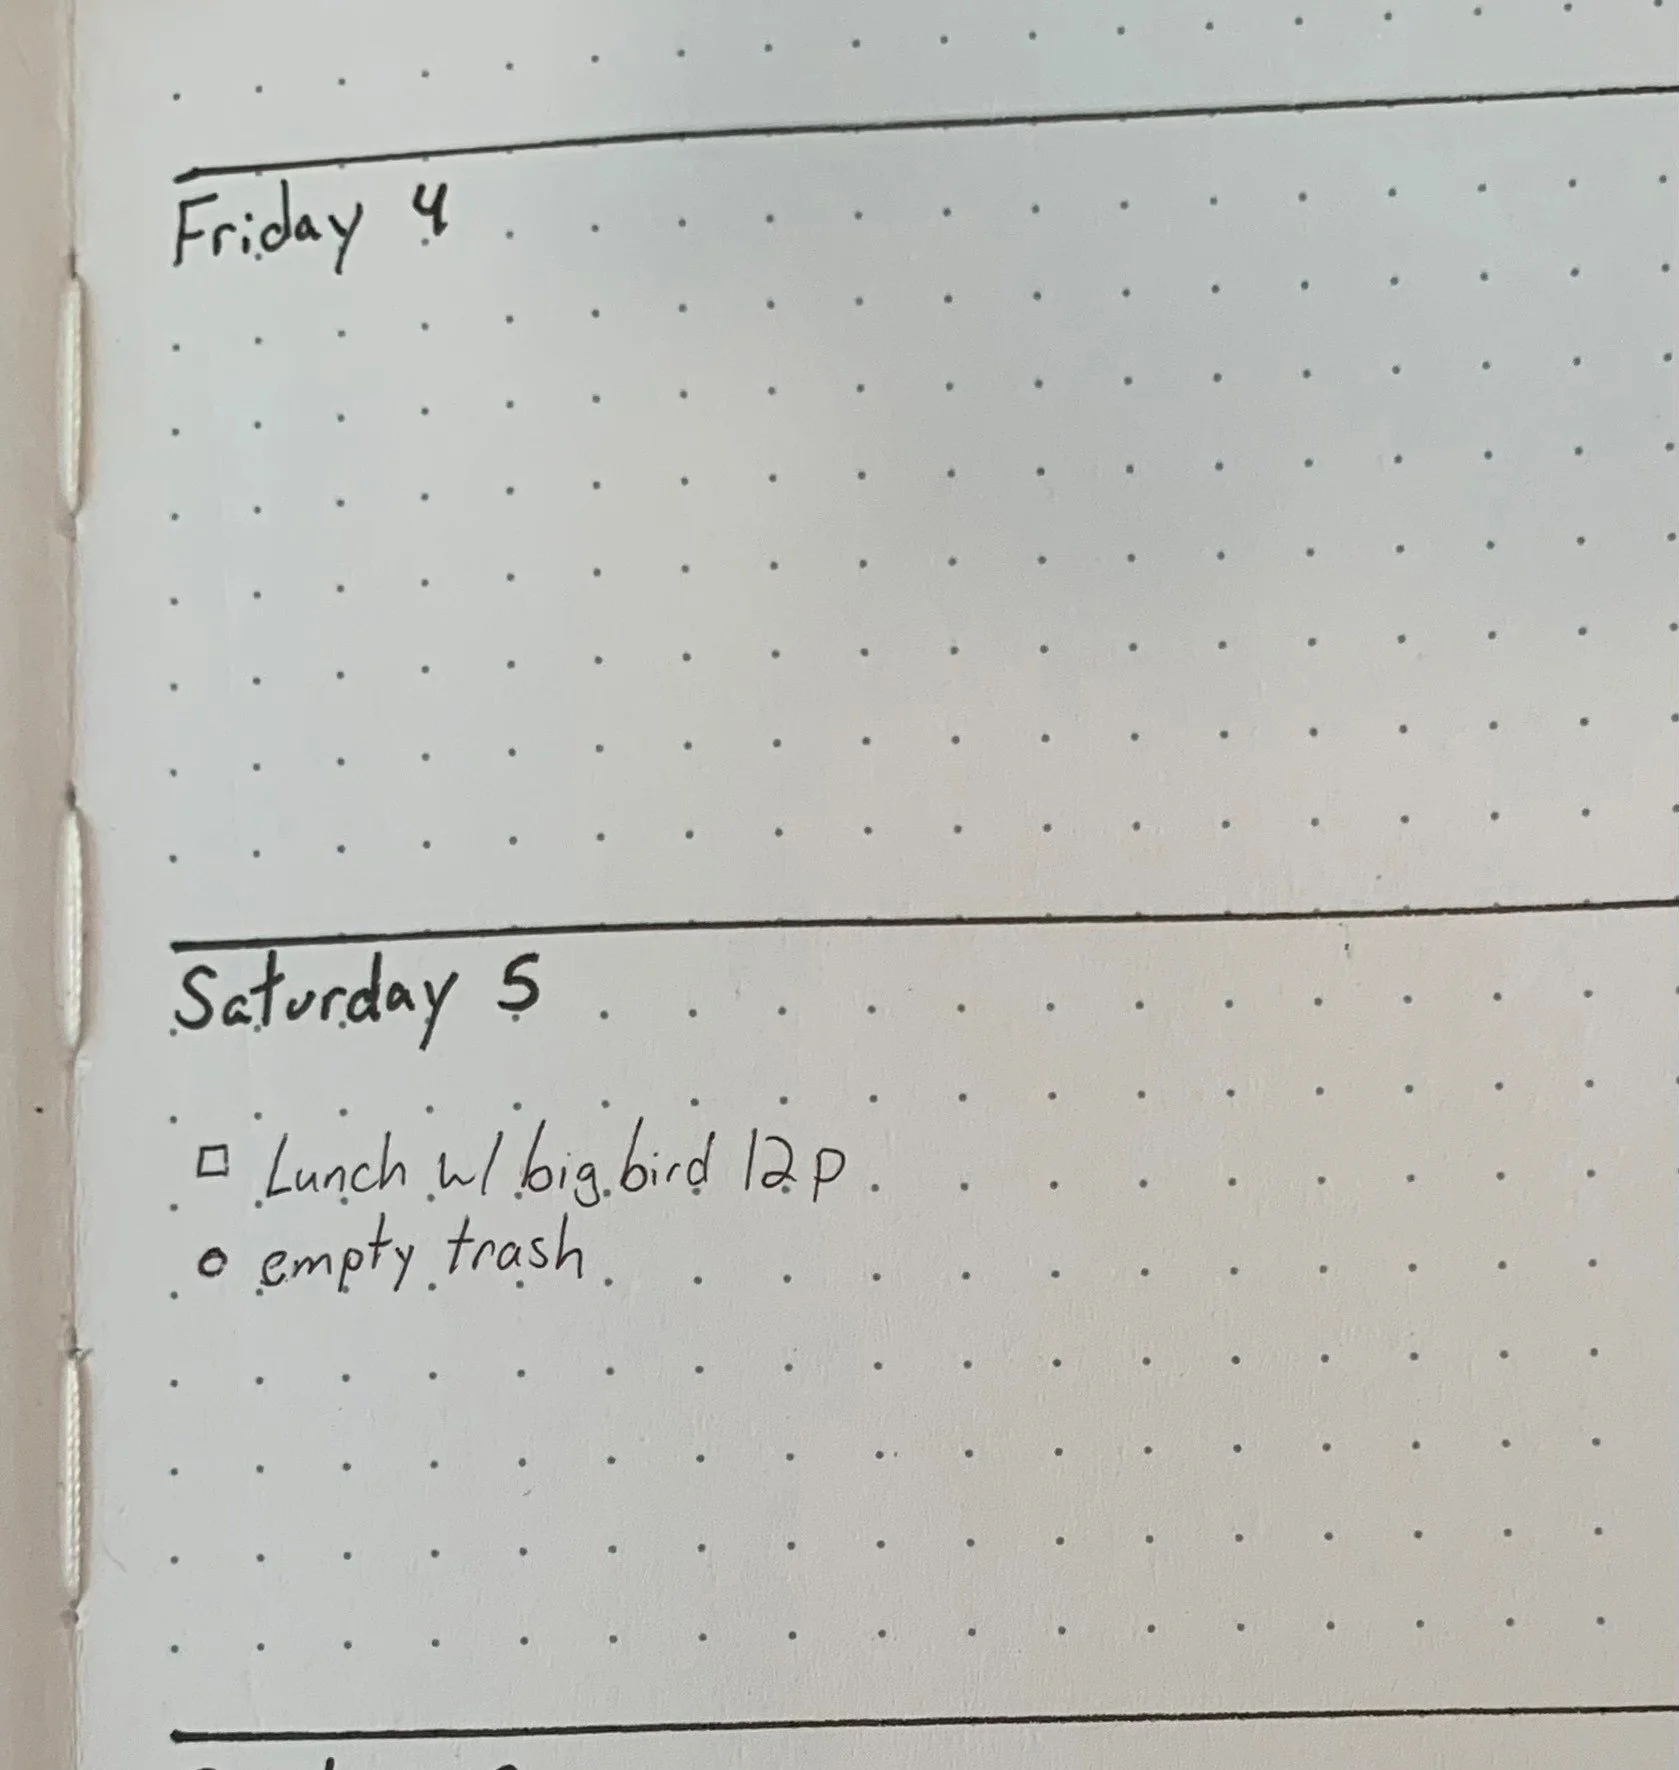 Friday 4
Saturday 5
□ Lunch w/ big bird 12p
○ empty trash